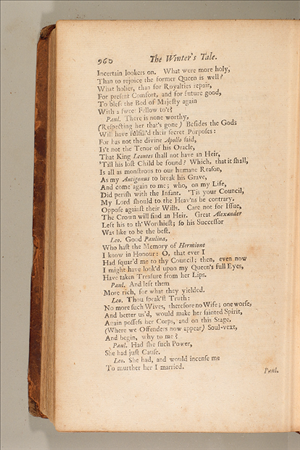 960 The Winter's Tale.
Incertain lookers on. What were more holy,
Than to rejoice the former Queen is well?
What holier, than for Royalties repair,
For present Comfort, and for future good,
To bless the Bed of Majesty again
With a sweet Fellow to't?
Paul. There is none worthy,
(Respecting her that's gone) Besides the Gods
Will have fulfill'd their secret Purposes:
For has not the divine Apollo said,
Is't not the Tenor of his Oracle,
That King Leontes shall not have an Heir,
'Till his lost Child be found? Which, that it shall,
Is all as monstrous to our humane Reason,
As my Antigonus to break his Grave,
And come again to me; who, on my Life,
Did perish with the Infant. 'Tis your Council,
My Lord should to the Heav'ns be contrary,
Oppose against their Wills. Care not for Issue,
The Crown will find an Heir. Great Alexander
Left his to th' Worthiest; so his Successor
Was like to be the best.
Leo. Good Paulina,
Who hast the Memory of Hermione
I know in Honour: O, that ever I
Had squar'd me to thy Council; then, even now
I might have look'd upon my Queen's full Eyes,
Have taken Treasure from her Lips.
Paul. And left them
More rich, for what they yielded.
Leo. Thou speak'st Truth:
No more such Wives, therefore no Wife; one worse,
And better us'd, would make her sainted Spirit,
Again possess her Corps, and on this Stage,
(Where we Offenders now appear) Soul-vext,
And begin, why to me?
Paul. Had she such Power,
She had just Cause.
Leo. She had, and would incense me
To murther her I married.
Paul.